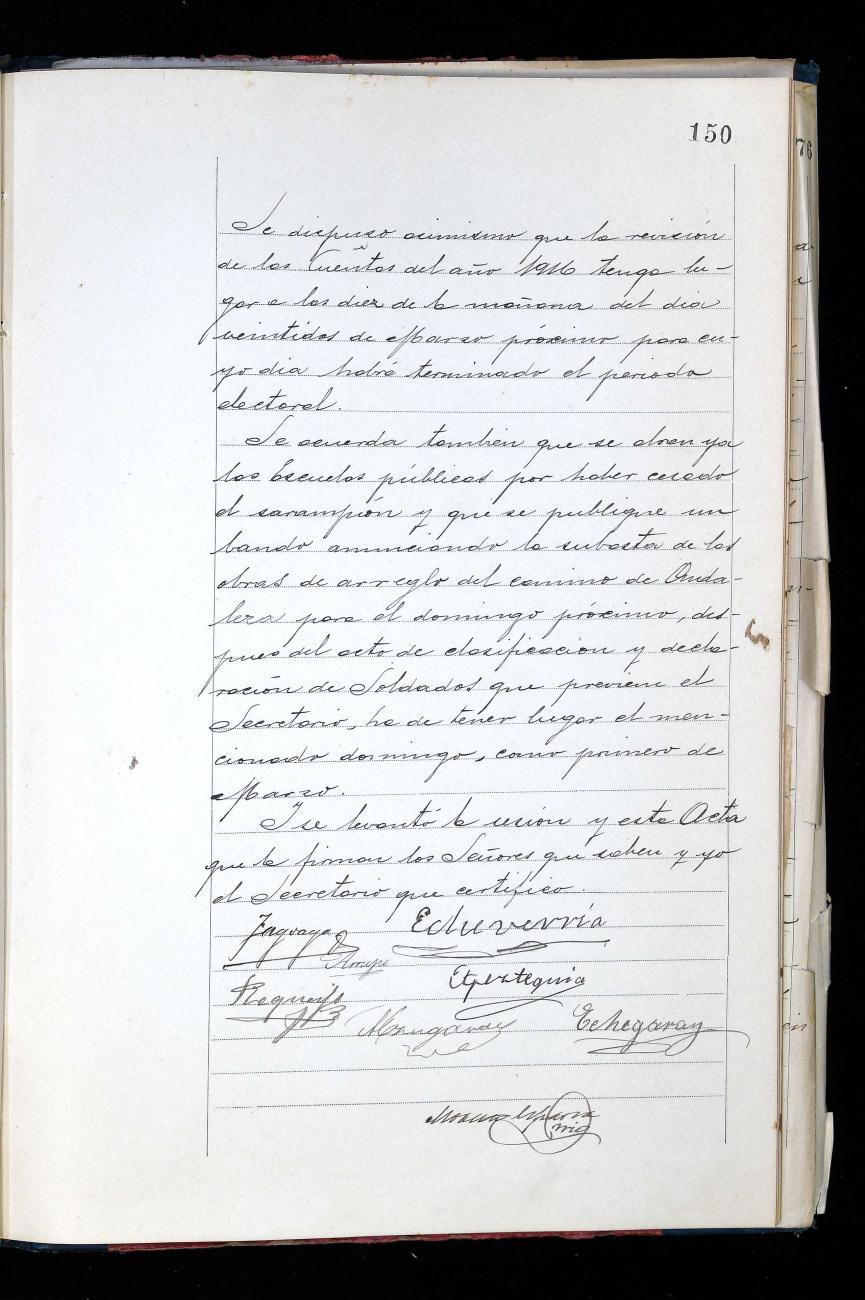 150
76
Se dispuso asimismo que la revisión
de las Cuentas del año 1916 tenga lu-
gar a las diez de la mañana del dia
veintidos de Marzo próximo para cu-
yo dia habrá terminado el periodo
electoral.
Se acuerda tambien que se abran ya
las Escuelas públicas por haber cesado
el sarampión y que se publique un
bando anunciando la subasta de las
obras de arreglo del camino de Onda-
leza para el domingo próximo, des-
pues del acto de clasificación y decla-
ración de Soldados que previene el
Secretario, ha de tener lugar el men-
cionado domingo, como primero de
Marzo.
I se levantó la sesión y esta Acta
que la firman los Señores que saben y yo
el Secretario que certifico.
Echeverría
Arrupe
Echegaray